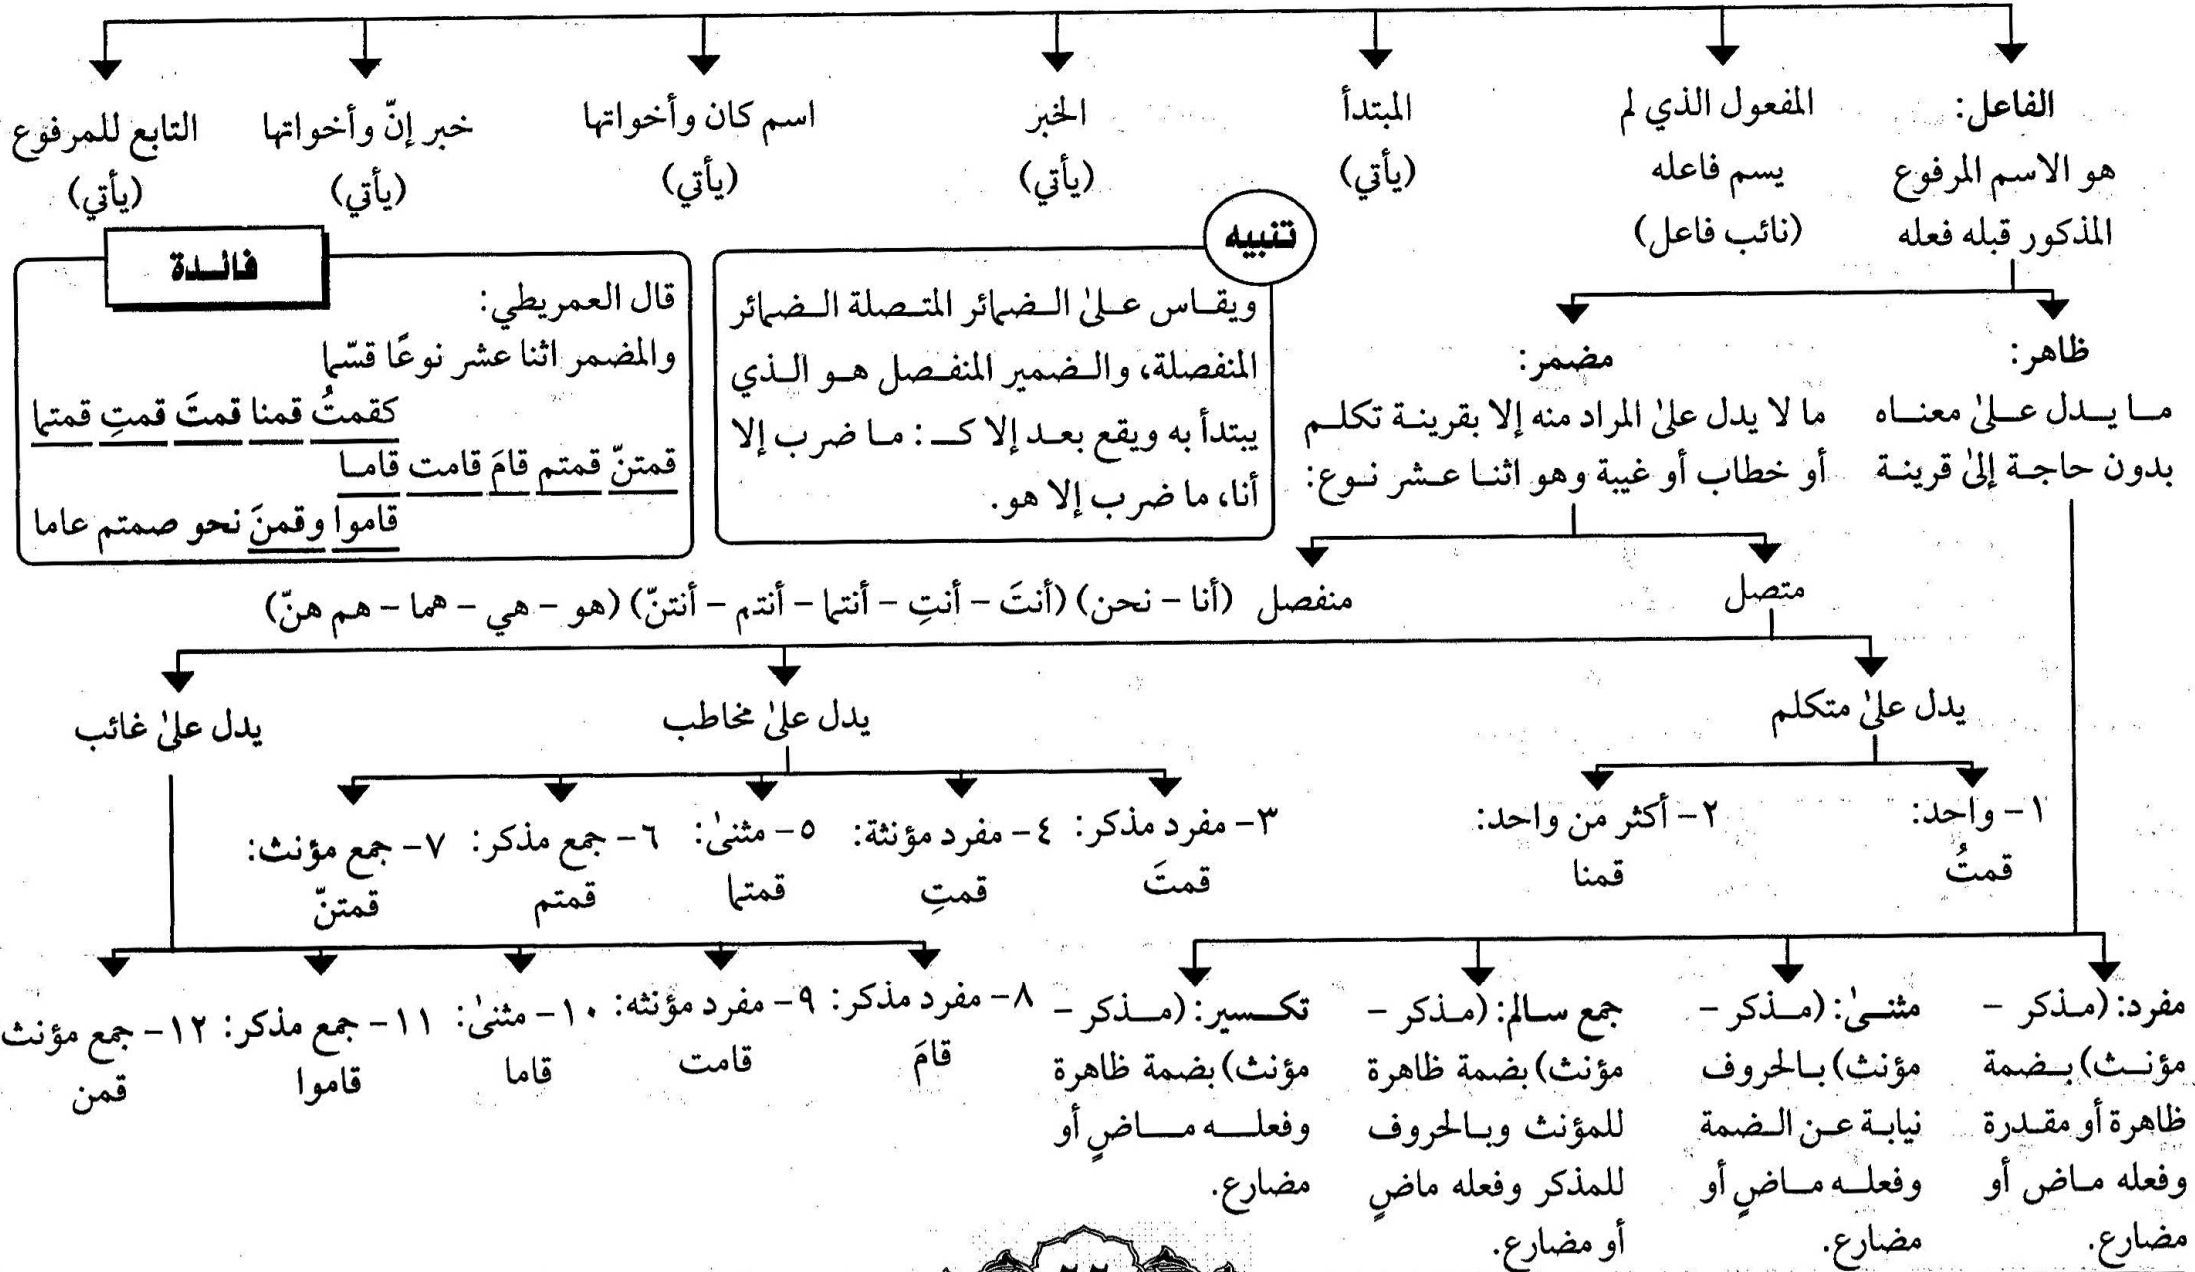 الفاعل:
هو الاسم المرفوع
المذكور قبله فعله
المفعول الذي لم
يسم فاعله
(نائب فاعل)
المبتدأ
(يأتي)
الخبر
(يأتي)
اسم كان وأخواتها
(يأتي)
خبر إنّ وأخواتها
(يأتي)
التابع للمرفوع
(يأتي)
تنبيه
ويقاس على الضمائر المتصلة الضمائر
المنفصلة، والضمير المنفصل هو الذي
يبتدأ به ويقع بعد إلا كـ : ما ضرب إلا
أنا، ما ضرب إلا هو.
فائدة
قال العمريطي:
والمضمر اثنا عشر نوعًا قسّما
كقمتُ قمنا قمتَ قمتِ قمتما
قمتنّ قمتم قامَ قامت قاما
قاموا وقمنَ نحو صمتم عاما
ظاهر:
ما يدل على معناه
بدون حاجة إلى قرينة
مضمر:
ما لا يدل على المراد منه إلا بقرينة تكلم
أو خطاب أو غيبة وهو اثنا عشر نوع:
متصل
منفصل (أنا – نحن) (أنتَ – أنتِ – أنتما – أنتم – أنتنّ) (هو – هي – هما – هم هنّ)
يدل على متكلم
يدل على مخاطب
يدل على غائب
١– واحد:
قمتُ
٢– أكثر من واحد:
قمنا
٣– مفرد مذكر:
قمتَ
٤– مفرد مؤنثة:
قمتِ
٥– مثنى:
قمتما
٦– جمع مذكر:
قمتم
٧– جمع مؤنث:
قمتنّ
٨– مفرد مذكر:
قامَ
٩– مفرد مؤنثه:
قامت
١٠– مثنى:
قاما
١١– جمع مذكر:
قاموا
١٢– جمع مؤنث
قمن
مفرد: (مذكر –
مؤنث) بضمة
ظاهرة أو مقدرة
وفعله ماض أو
مضارع.
مثنى: (مذكر –
مؤنث) بالحروف
نيابة عن الضمة
وفعله ماضٍ أو
مضارع.
جمع سالم: (مذكر –
مؤنث) بضمة ظاهرة
للمؤنث وبالحروف
للمذكر وفعله ماضٍ
أو مضارع.
تكسير: (مذكر –
مؤنث) بضمة ظاهرة
وفعله ماضٍ أو
مضارع.